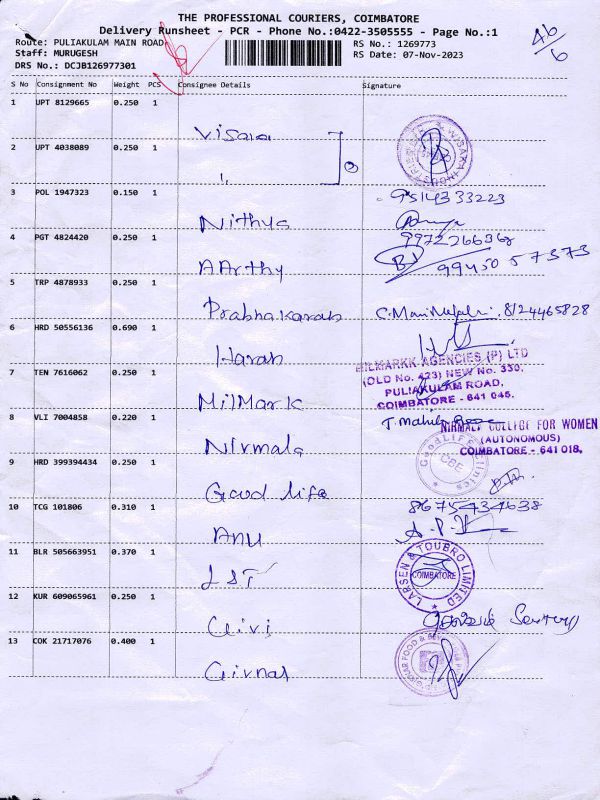 THE PROFESSIONAL COURIERS, COIMBATORE
Delivery Runsheet - PCR - Phone No.:0422-3505555 - Page No.:1
Route: PULIAKULAM MAIN ROAD
Staff: MURUGESH
DRS No.: DCJB126977301
RS No.: 1269773
RS Date: 07-Nov-2023
46/6
S No Consignment No Weight PCS Consignee Details Signature
1 UPT 8129665 0.250 1 Visaka
2 UPT 4038089 0.250 1 "
3 POL 1947323 0.150 1 Nithya 9514333223
4 PGT 4824420 0.250 1 AArthy 9972266362
9945057373
5 TRP 4878933 0.250 1 Prabhakaran C. 8124465828
6 HRD 50556136 0.690 1 Haran
7 TEN 7616062 0.250 1 MilMark
MILMARKK AGENCIES (P) LTD
(OLD No. 423) NEW No. 330,
PULIAKULAM ROAD,
COIMBATORE - 641 045.
8 VLI 7004858 0.220 1 Nirmala
NIRMALA COLLEGE FOR WOMEN
(AUTONOMOUS)
COIMBATORE - 641 018.
9 HRD 399394434 0.250 1 Good life
GoodLife Clinics
CBE
10 TCG 101806 0.310 1 Anu 8675434638
11 BLR 505663951 0.370 1 L&T
LARSEN & TOUBRO LIMITED
COIMBATORE
12 KUR 609065961 0.250 1 Civi
13 COK 21717076 0.400 1 Girnar